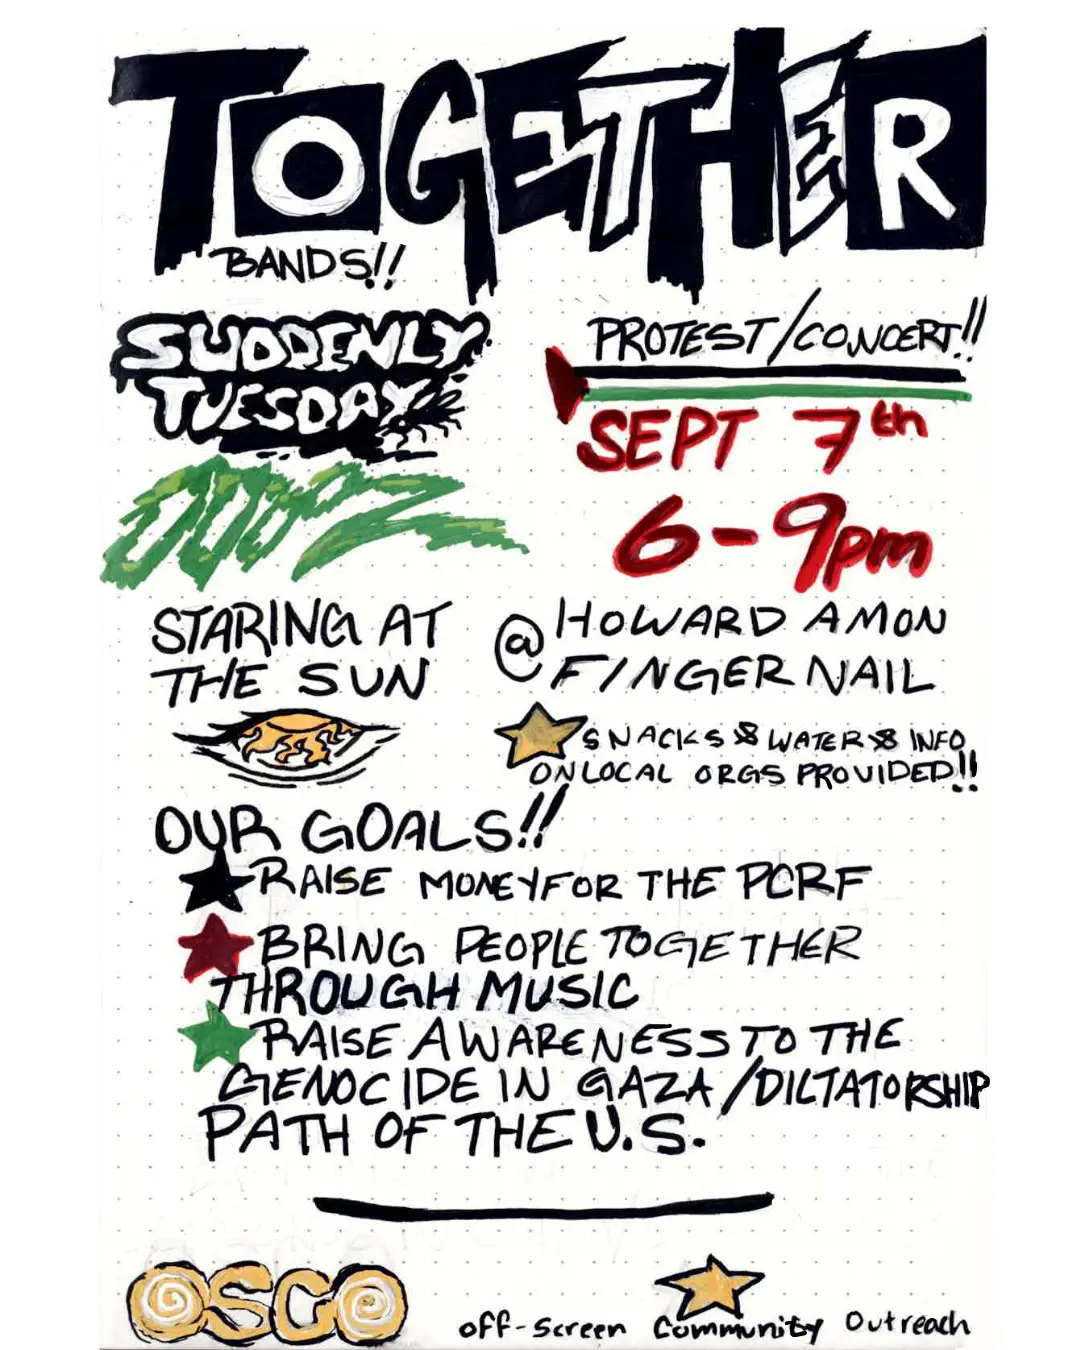 TOGETHER
BANDS!!
SUDDENLY
TUESDAY
OOOZ
STARING AT
THE SUN
PROTEST/CONCERT!!
SEPT 7th
6-9pm
@ HOWARD AMON
FINGERNAIL
SNACKS & WATER & INFO
ON LOCAL ORGS PROVIDED!!
OUR GOALS!!
RAISE MONEY FOR THE PCRF
BRING PEOPLE TOGETHER
THROUGH MUSIC
RAISE AWARENESS TO THE
GENOCIDE IN GAZA/DICTATORSHIP
PATH OF THE U.S.
OSCO
Off-Screen Community Outreach